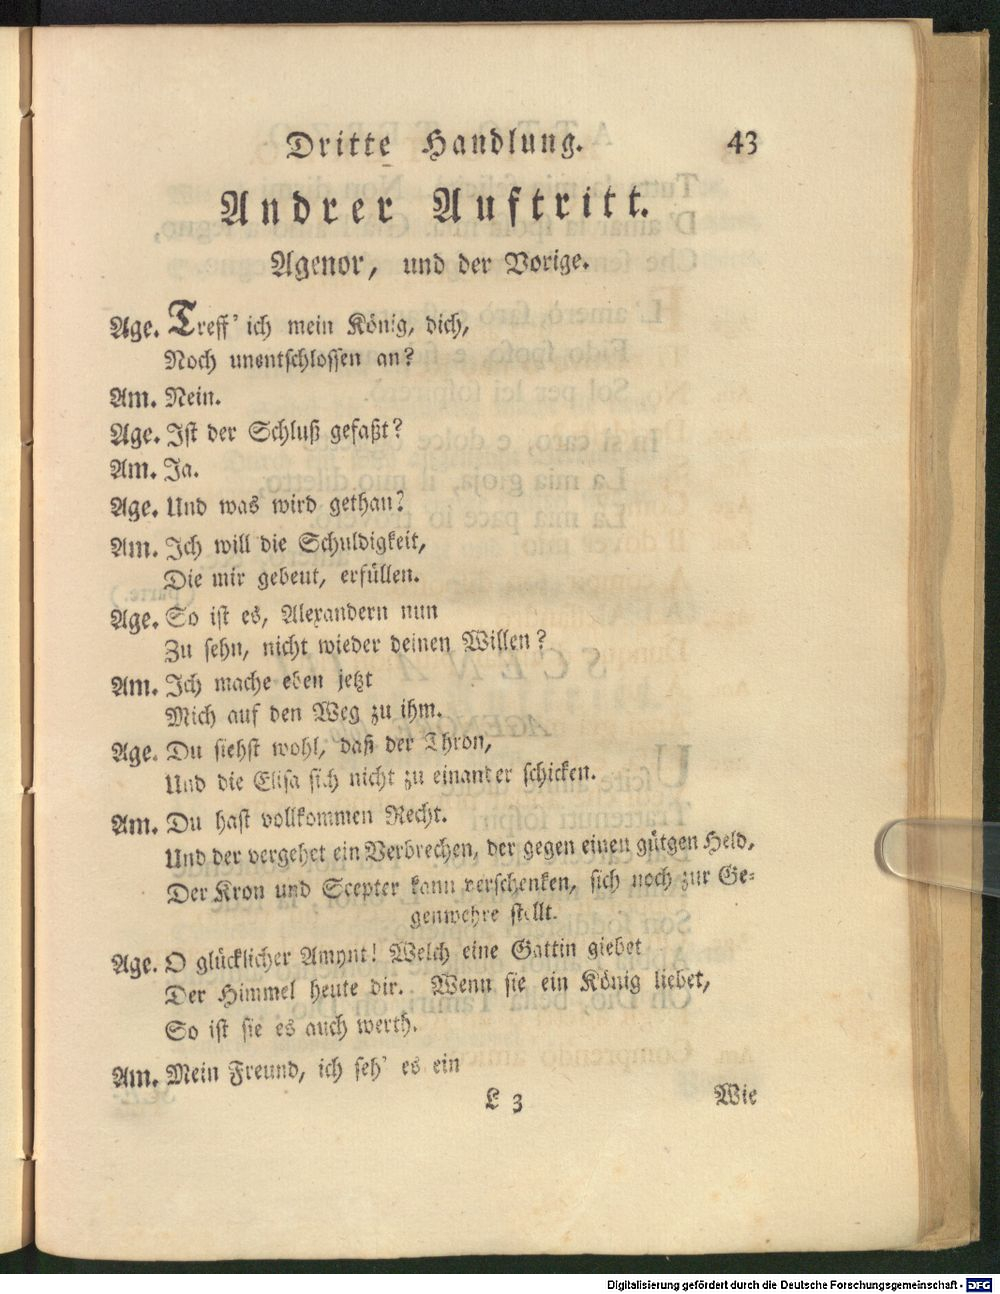 Dritte Handlung. 43
Andrer Auftritt.
Agenor, und der Vorige.
Age. Treff' ich mein König, dich,
Noch unentschlossen an?
Am. Nein.
Age. Ist der Schluß gefaßt?
Am. Ja.
Age. Und was wird gethan?
Am. Ich will die Schuldigkeit,
Die mir gebeut, erfüllen.
Age. So ist es, Alexandern nun
Zu sehn, nicht wieder deinen Willen?
Am. Ich mache eben jetzt
Mich auf den Weg zu ihm.
Age. Du siehst wohl, daß der Thron,
Und die Elisa sich nicht zu einander schicken.
Am. Du hast vollkommen Recht.
Und der vergehet ein Verbrechen, der gegen einen gütgen Held,
Der Kron und Scepter kann verschenken, sich noch zur Ge-
genwehre stellt.
Age. O glücklicher Amynt! Welch eine Gattin giebet
Der Himmel heute dir. Wenn sie ein König liebet,
So ist sie es auch werth.
Am. Mein Freund, ich seh' es ein
L 3 Wie
Digitalisierung gefördert durch die Deutsche Forschungsgemeinschaft - DFG